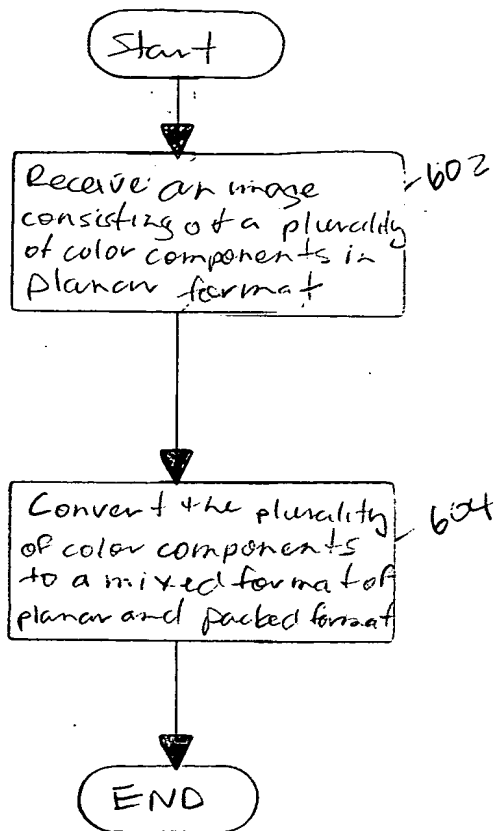 Start
Receive an image
consisting of a plurality
of color components in
planar format
602
Convert the plurality
of color components
to a mixed format of
planar and packed format
604
END